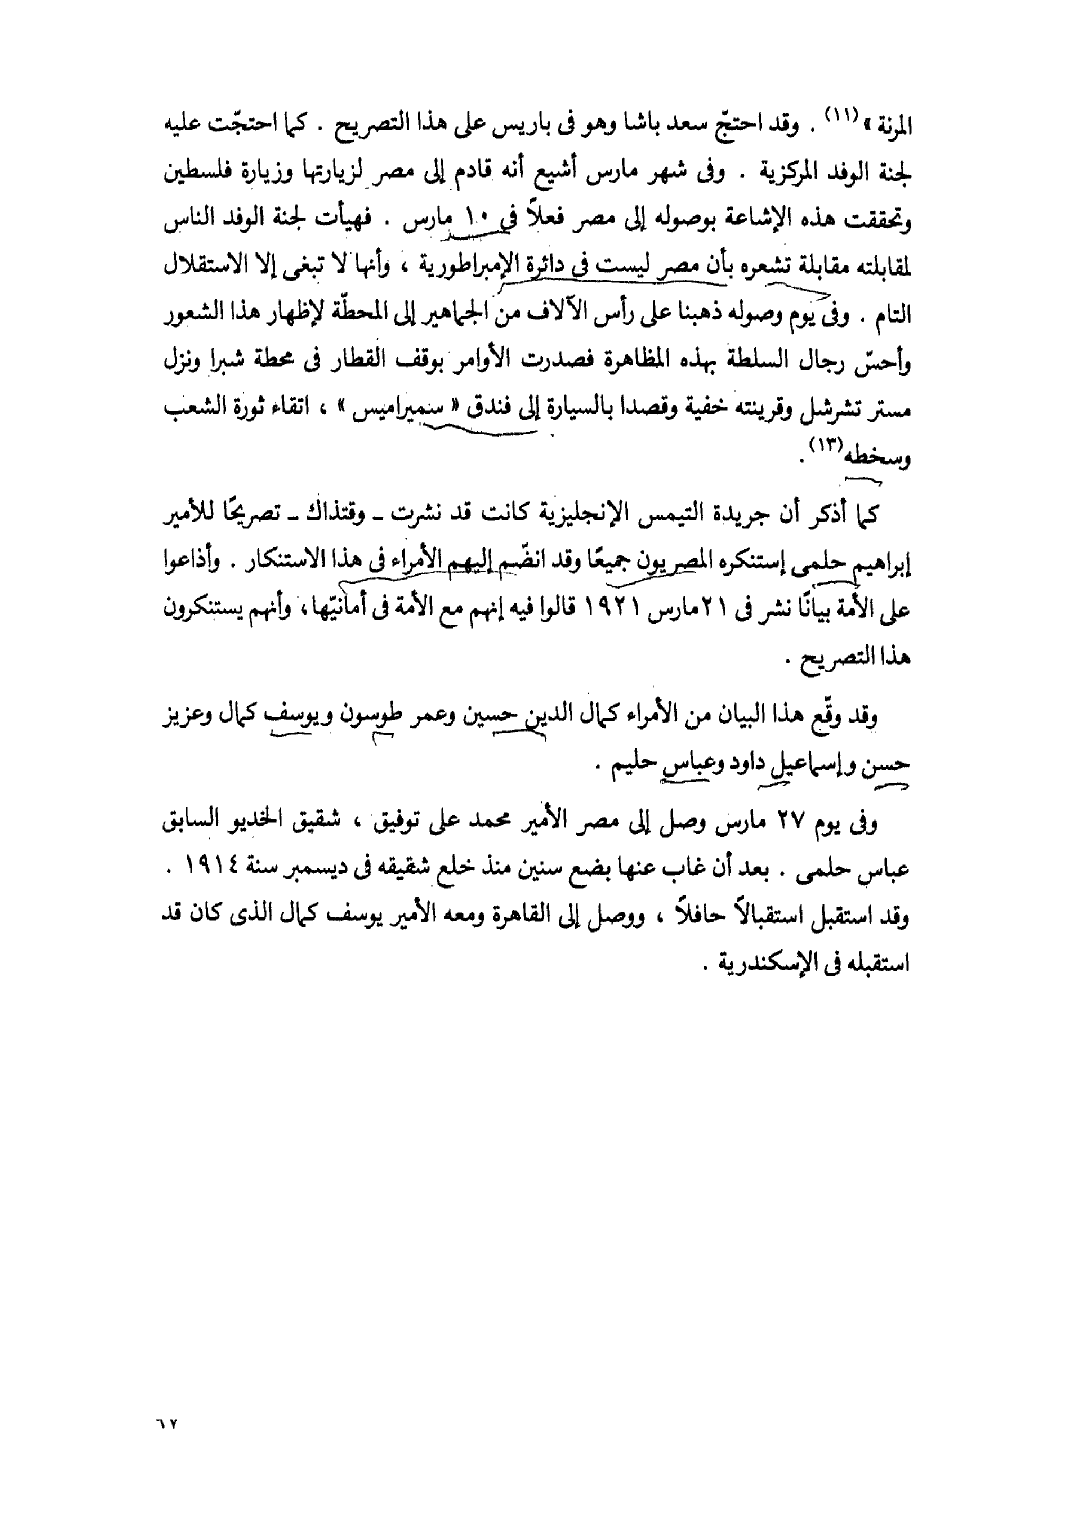 المرنة »(١١) . وقد احتجّ سعد باشا وهو فى باريس على هذا التصريح . كما احتجّت عليه
لجنة الوفد المركزية . وفى شهر مارس أشيع أنه قادم إلى مصر لزيارتها وزيارة فلسطين
وتحققت هذه الإشاعة بوصوله إلى مصر فعلاً فى ١٠ مارس . فهيأت لجنة الوفد الناس
لمقابلته مقابلة تشعره بأن مصر ليست فى دائرة الإمبراطورية ، وأنها لا تبغى إلا الاستقلال
التام . وفى يوم وصوله ذهبنا على رأس الآلاف من الجماهير إلى المحطّة لإظهار هذا الشعور
وأحسّ رجال السلطة بهذه المظاهرة فصدرت الأوامر بوقف القطار فى محطة شبرا ونزل
مستر تشرشل وقرينته خفية وقصدا بالسيارة إلى فندق « سميراميس » ، اتقاء ثورة الشعب
وسخطه(١٣).
كما أذكر أن جريدة التيمس الإنجليزية كانت قد نشرت ـ وقتذاك ـ تصريحًا للأمير
إبراهيم حلمى إستنكره المصريون جميعًا وقد انضّم إليهم الأمراء فى هذا الاستنكار . وأذاعوا
على الأمة بيانًا نشر فى ٢١مارس ١٩٢١ قالوا فيه إنهم مع الأمة فى أمانيّها، وأنهم يستنكرون
هذا التصريح .
وقد وقّع هذا البيان من الأمراء كمال الدين حسين وعمر طوسون ويوسف كمال وعزيز
حسن وإسماعيل داود وعباس حليم .
وفى يوم ٢٧ مارس وصل إلى مصر الأمير محمد على توفيق ، شقيق الخديو السابق
عباس حلمى . بعد أن غاب عنها بضع سنين منذ خلع شقيقه فى ديسمبر سنة ١٩١٤ .
وقد استقبل استقبالاً حافلاً ، ووصل إلى القاهرة ومعه الأمير يوسف كمال الذى كان قد
استقبله فى الإسكندرية .
٦٧